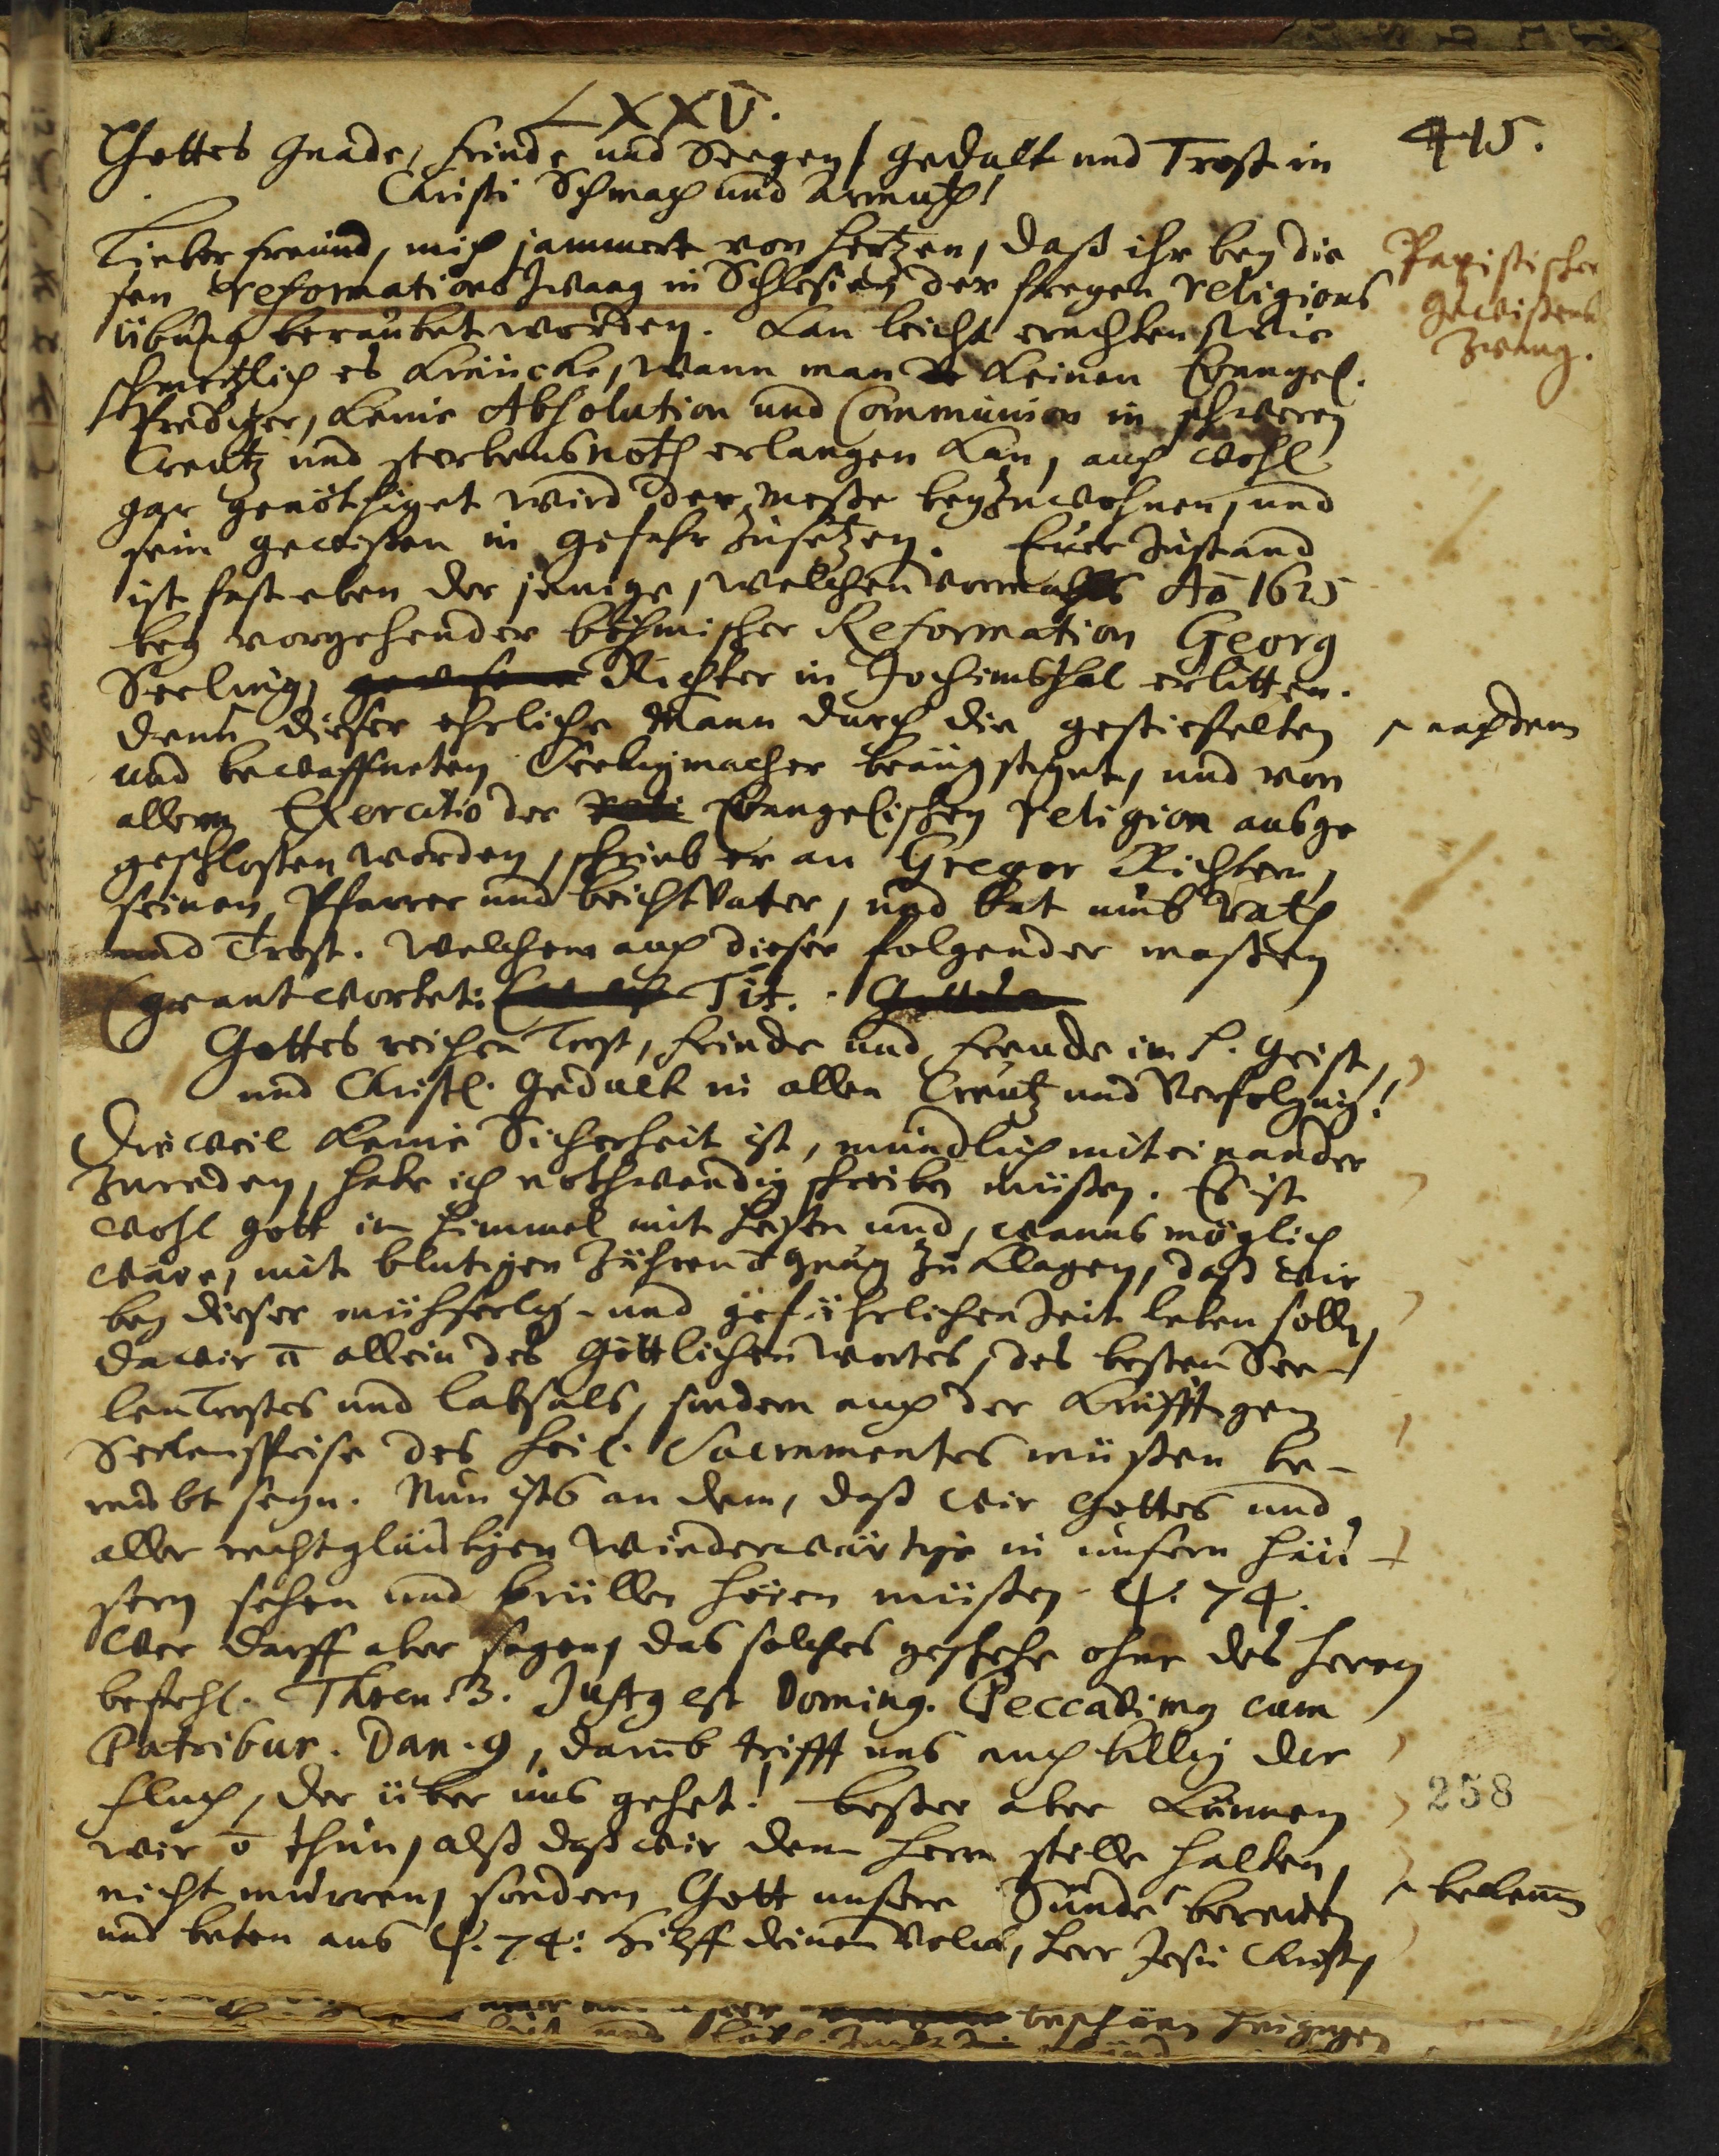 LXXV.
415.
Gottes Gnade, Friede und Seegen, Gedult und Trost in
Christi Schmach und Armuth!
Lieber Freund, mich jammert von Hertzen, daß ihr bey die
sen Reformations Zwang in Schlesien der freyen Religions
übung beraubet worden. Kan leicht erachten wie
schmertzlich es kräncke, wann man keinen Evangel.
Prediger, keine Absolution und Communion in schweren
Creutz und sterbensnoth erlangen kan, auch wohl
gar genöthiget wird der Meße beyzuwohnen, und
sein gewißen in gefahr zusetzen. Euer Zustand
ist fast eben der jenige, welchen vormahls Aō 1625
bey vorgehender böhmischer Reformation Georg
Seeling, Richter in Jochimbsthal erlitten.
Denn dieser ehrliche Mann durch die gestiefelten
und bewaffneten Seeligmacher beängstiget, und von
allem Exercitio der Evangelischen Religion ausge
geschloßen worden, schrieb er an Gregor Richtern,
seinen Pfarrer und beichtvatter, und bat umb Rath
und Trost. Welchem auch dieser folgender maßen
geantwortet: Tit.
Gottes reichen Trost, Friede und Freude im H. Geist,
und Christl. Gedult in allen Creutz und Verfolgung!
Dieweil keine Sicherheit ist, mündlich miteinander
zureden, habe ich nothwendig schreiben müßen. Es ist
wohl Gott im Himmel mit heißen und, wanns möglich
wäre, mit blutigen Zähren ō gnug zu klagen, daß wir
bey dieser mühseelig- und gefährlichen Zeit leben sollen,
da wir ō allein des Göttlichen Wortes, des besten See-
len Trostes und labsals, sondern auch der kräfftigen
Seelenspeise des Heil. Sacramentes müßen be-
raubt seyn. Nun ists an dem, daß wir Gottes und
aller rechtgläubigen Wiederwärtige in unsern Häu-
sern sehen und brüllen hören müßen. Ps. 74.
Wer darff aber sagen, das solches geschehe ohne des Herren
befehl. Thren. 3. Justq est Dominq. Peccavimq cum
Patribus. Dan. 9, darumb trifft uns auch billig der
Fluch, der über uns gehet! Beßer aber können
wir ō thun, alß daß wir dem Herrn stille halten,
nicht murren, sondern Gott unsere Sünde bereuen
und beten aus Ps. 74: Hilff deinem Volck, Herr Jesu Christ,
Papistischer
Gewißens
Zwang.
nachdem
bekennen
258